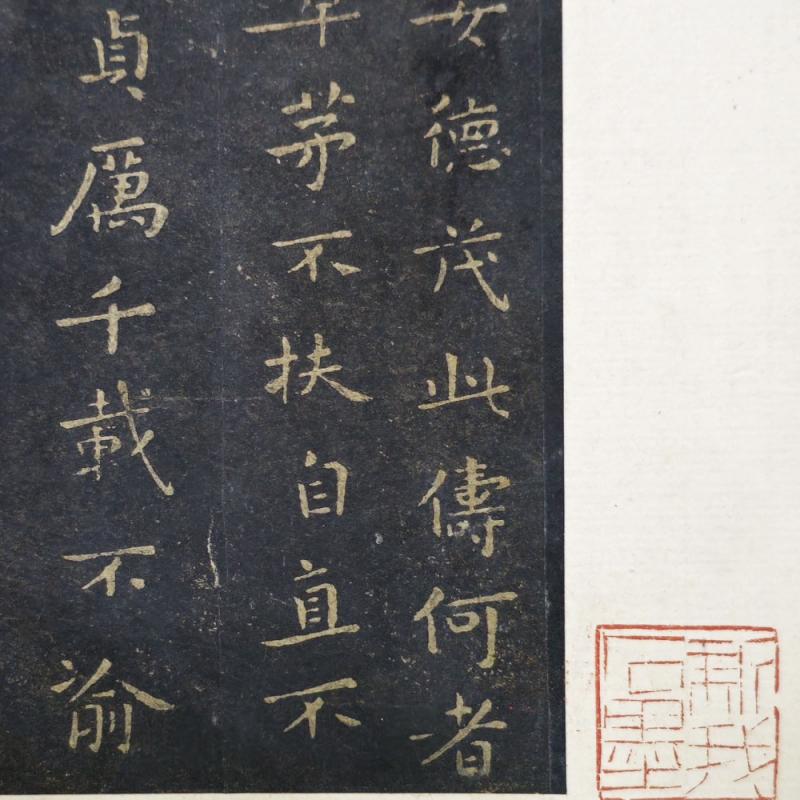 德茂此儔何者
茅不扶自直不
貞厲千載不渝